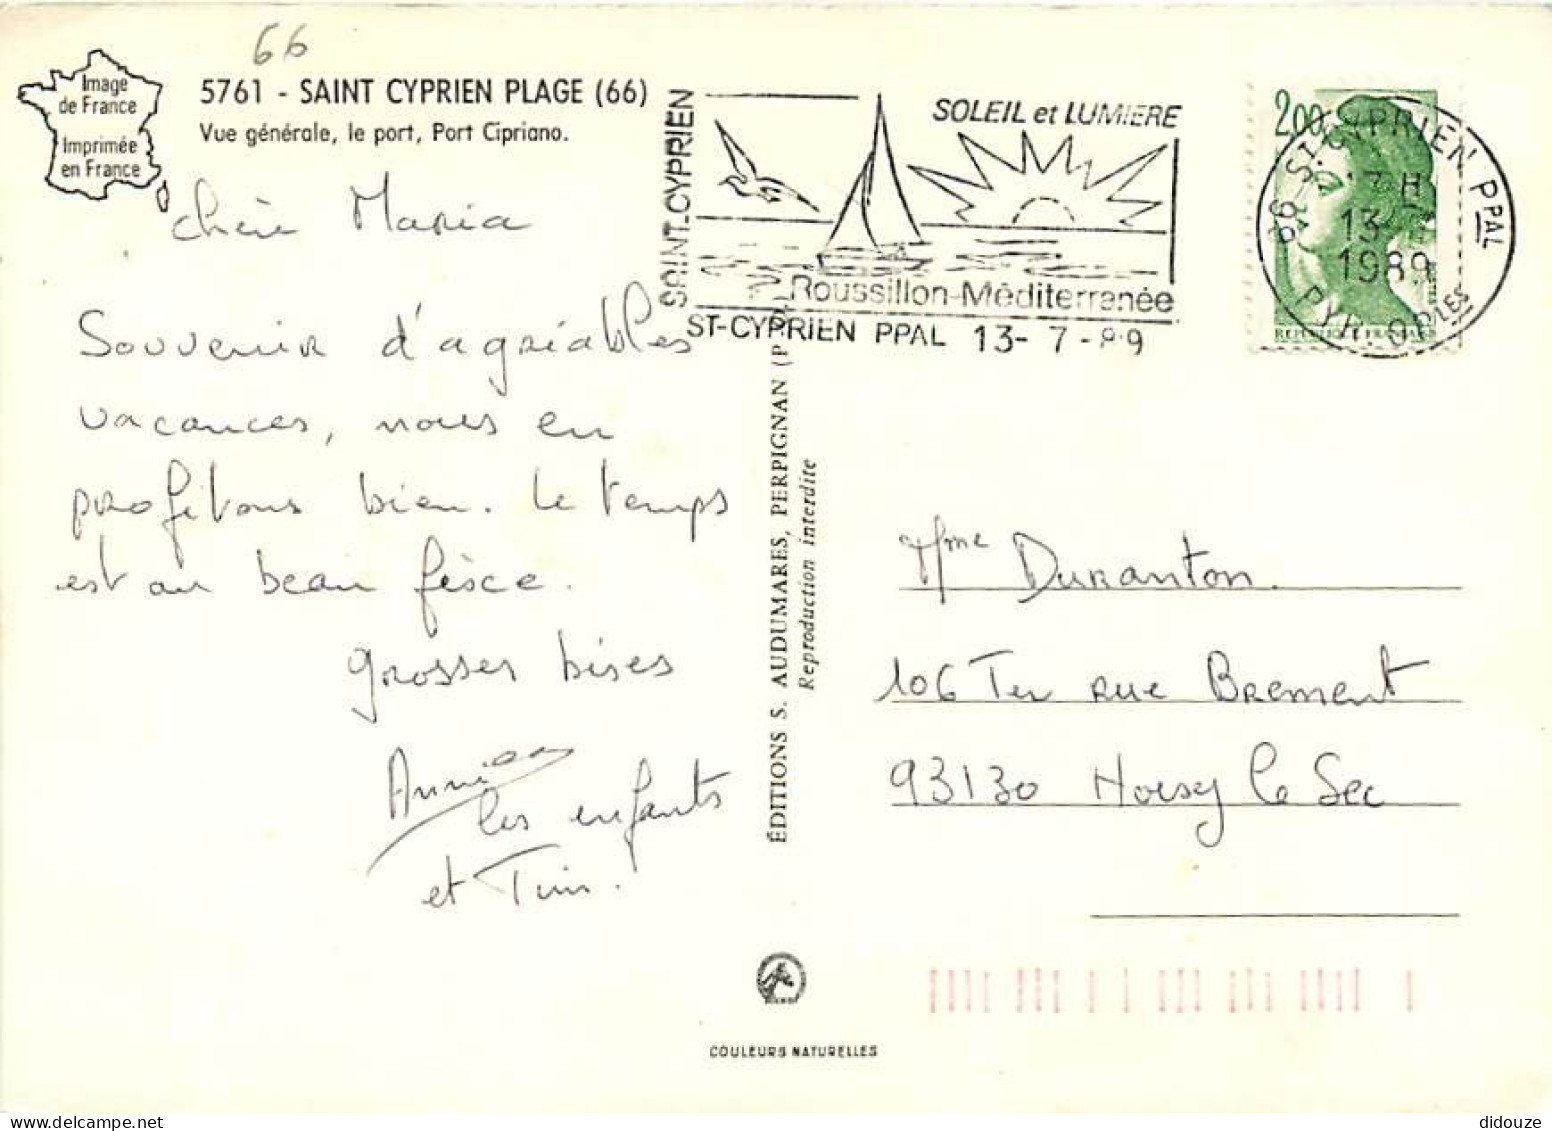 66
Image
de France
Imprimée
en France
5761 - SAINT CYPRIEN PLAGE (66)
Vue générale, le port, Port Cipriano.
SAINT-CYPRIEN
SOLEIL et LUMIERE
Roussillon-Méditerranée
ST-CYPRIEN PPAL 13-7-89
2,00
REPUBLIQUE FRANÇAISE
66 ST. CYPRIEN PPAL
13
1989
PYR. O PLES
chère Maria
Souvenir d'agréables
vacances, nous en
profitons bien. Le temps
est au beau fisce.
grosses bises
Annie
les enfants
et Tim.
ÉDITIONS S. AUDUMARES, PERPIGNAN
Reproduction interdite
Mme Duranton
106 Ter rue Brement
93130 Noisy le Sec
COULEURS NATURELLES
didouze